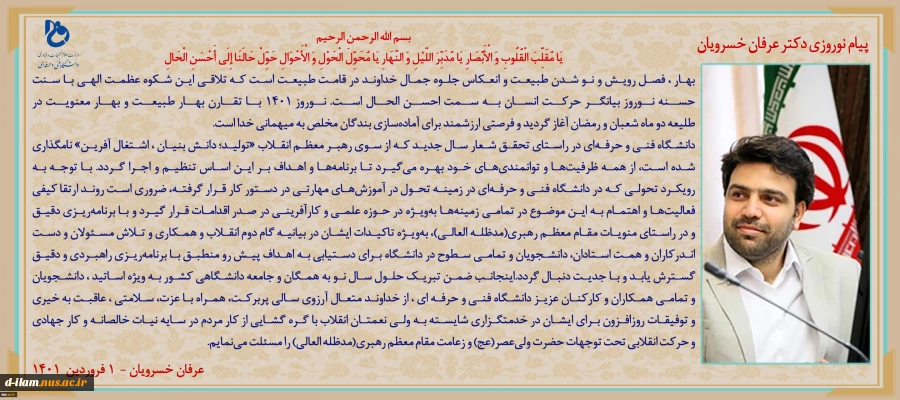 پیام نوروزی دکتر عرفان خسرویان
بسم الله الرحمن الرحیم
یَا مُقَلِّبَ الْقُلُوبِ وَ الْأَبْصَارِ یَا مُدَبِّرَ اللَّیْلِ وَ النَّهَارِ یَا مُحَوِّلَ الْحَوْلِ وَ الْأَحْوَالِ حَوِّلْ حَالَنَا إِلَى أَحْسَنِ الْحَالِ
بهار ، فصل رویش و نو شدن طبیعت و انعکاس جلوه جمال خداوند در قامت طبیعت است که تلاقی این شکوه عظمت الهی با سنت
حسنه نوروز بیانگر حرکت انسان به سمت احسن الحال است. نوروز ۱۴۰۱ با تقارن بهار طبیعت و بهار معنویت در
طلیعه دو ماه شعبان و رمضان آغاز گردید و فرصتی ارزشمند برای آماده‌سازی بندگان مخلص به میهمانی خدا است.
دانشگاه فنی و حرفه‌ای در راستای تحقق شعار سال جدید که از سوی رهبر معظم انقلاب «تولید؛ دانش بنیان ، اشتغال آفرین» نامگذاری
شده است، از همه ظرفیت‌ها و توانمندی‌های خود بهره می‌گیرد تا برنامه‌ها و اهداف بر این اساس تنظیم و اجرا گردد. با توجه به
رویکرد تحولی که در دانشگاه فنی و حرفه‌ای در زمینه تحول در آموزش‌های مهارتی در دستور کار قرار گرفته، ضروری است روند ارتقا کیفی
فعالیت‌ها و اهتمام به این موضوع در تمامی زمینه‌ها به‌ویژه در حوزه علمی و کارآفرینی در صدر اقدامات قرار گیرد و با برنامه‌ریزی دقیق
و در راستای منویات مقام معظم رهبری(مدظله العالی)، به‌ویژه تاکیدات ایشان در بیانیه گام دوم انقلاب و همکاری و تلاش مسئولان و دست
اندرکاران و همت استادان، دانشجویان و تمامی سطوح در دانشگاه برای دستیابی به اهداف پیش رو منطبق با برنامه‌ریزی راهبردی و دقیق
گسترش یابد و با جدیت دنبال گردد.اینجانب ضمن تبریک حلول سال نو به همگان و جامعه دانشگاهی کشور به ویژه اساتید ، دانشجویان
و تمامی همکاران و کارکنان عزیز دانشگاه فنی و حرفه ای ، از خداوند متعال آرزوی سالی پربرکت، همراه با عزت، سلامتی ، عاقبت به خیری
و توفیقات روزافزون برای ایشان در خدمتگزاری شایسته به ولی نعمتان انقلاب با گره گشایی از کار مردم در سایه نیات خالصانه و کار جهادی
و حرکت انقلابی تحت توجهات حضرت ولی‌عصر(عج) و زعامت مقام معظم رهبری(مدظله العالی) را مسئلت می‌نمایم.
عرفان خسرویان - ۱ فروردین ۱۴۰۱
d-ilam.nus.ac.ir